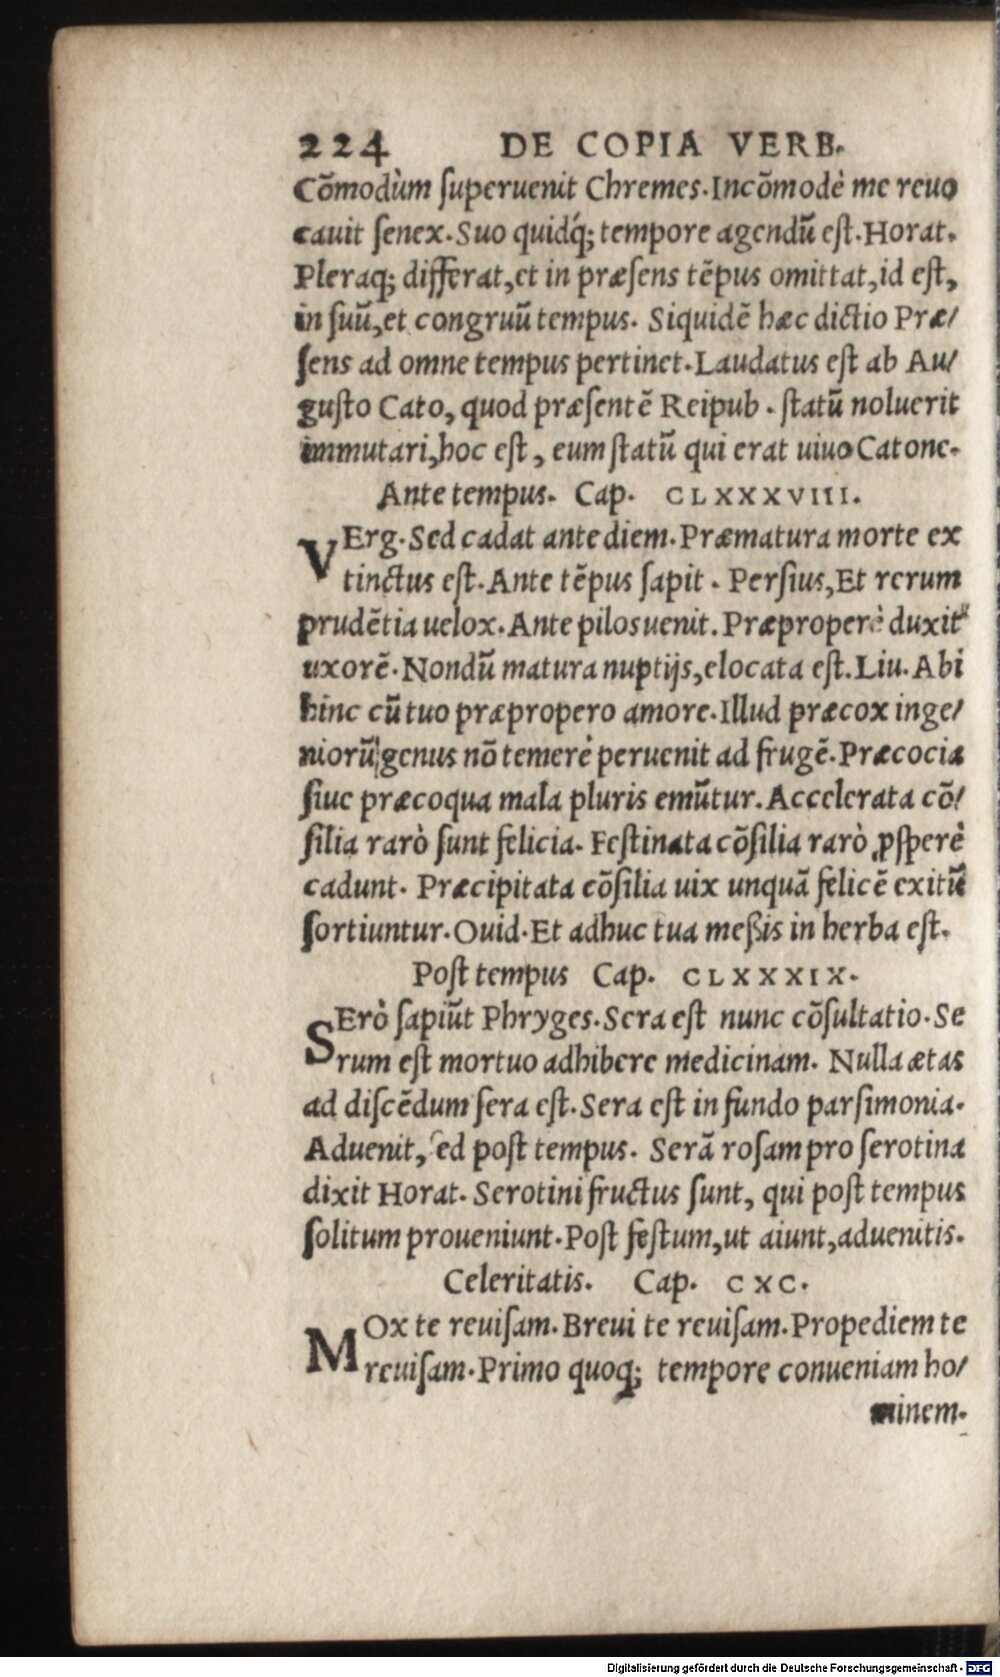 224 DE COPIA VERB.
Cõmodùm ſuperuenit Chremes. Incõmodè me reuo
cauit ſenex. Suo quidq́; tempore agendũ eſt. Horat.
Pleraq; differat, et in præſens tẽpus omittat, id eſt,
in ſuũ, et congruũ tempus. Siquidẽ hæc dictio Præ/
ſens ad omne tempus pertinet. Laudatus eſt ab Au/
guſto Cato, quod præſentẽ Reipub. ſtatũ noluerit
immutari, hoc eſt, eum ſtatũ qui erat uiuo Catone.
Ante tempus. Cap. CLXXXVIII.
VErg. Sed cadat ante diem. Præmatura morte ex
tinctus eſt. Ante tẽpus ſapit. Perſius, Et rerum
prudẽtia uelox. Ante pilos uenit. Præproperè duxit
uxorẽ. Nondũ matura nuptijs, elocata eſt. Liu. Abi
hinc cũ tuo præpropero amore. Illud præcox inge/
niorũ genus nõ temerè peruenit ad frugẽ. Præcocia
ſiue præcoqua mala pluris emũtur. Accelerata cõ/
ſilia rarò ſunt felicia. Feſtinata cõſilia rarò ꝓſperè
cadunt. Præcipitata cõſilia uix unquã felicẽ exitũ
ſortiuntur. Ouid. Et adhuc tua meßis in herba eſt.
Poſt tempus Cap. CLXXXIX.
SErò ſapiũt Phryges. Sera eſt nunc cõſultatio. Se
rum eſt mortuo adhibere medicinam. Nulla ætas
ad diſcẽdum ſera eſt. Sera eſt in fundo parſimonia.
Aduenit, ſed poſt tempus. Serã roſam pro ſerotina
dixit Horat. Serotini fructus ſunt, qui poſt tempus
ſolitum proueniunt. Poſt feſtum, ut aiunt, aduenitis.
Celeritatis. Cap. CXC.
MOx te reuiſam. Breui te reuiſam. Propediem te
reuiſam. Primo quoq; tempore conueniam ho/
minem.
Digitalisierung gefördert durch die Deutsche Forschungsgemeinschaft - DFG